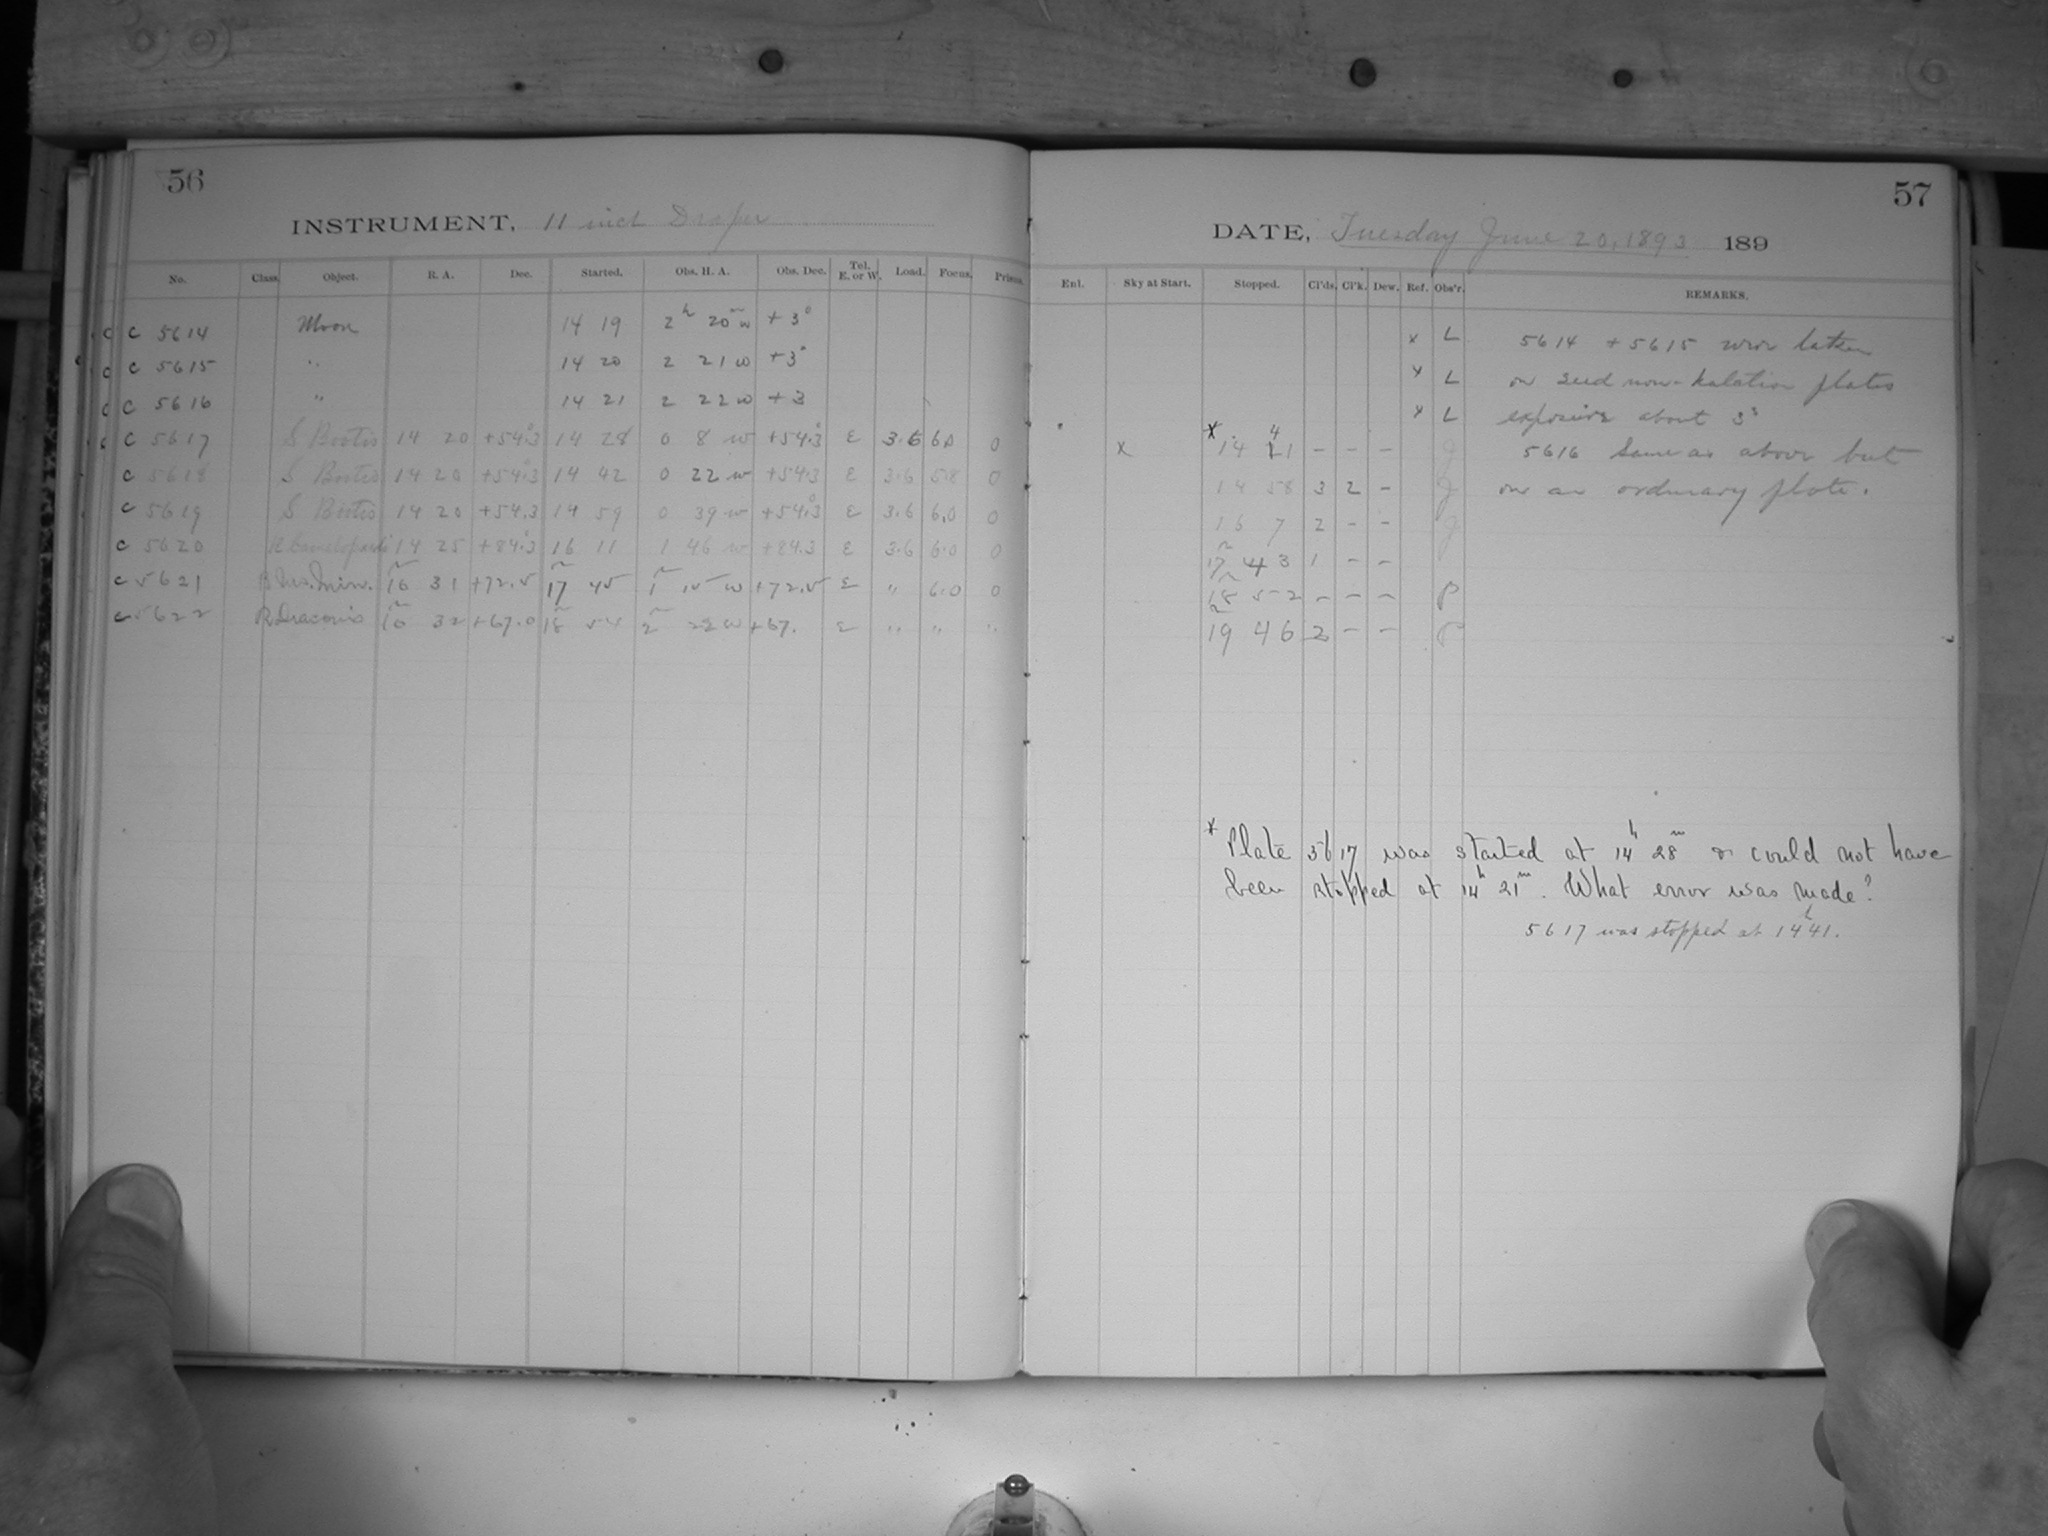 56
INSTRUMENT, 11 inch Draper
No. Class. Object. R. A. Dec. Started. Obs. H. A. Obs. Dec. Tel. E. or W. Load. Focus. Prisms.
C 5614 Moon 14 19 2h 20m w +3°
C 5615 " 14 20 2 21 w +3°
C 5616 " 14 21 2 22 w +3
C 5617 S Bootis 14 20 +54.3 14 28 0 8 w +54.3 E 3.6 6.0 0
C 5618 S Bootis 14 20 +54.3 14 42 0 22 w +54.3 E 3.6 5.8 0
C 5619 S Bootis 14 20 +54.3 14 59 0 39 w +54.3 E 3.6 6.0 0
C 5620 R Camelopardi 14 25 +84.3 16 11 1 46 w +84.3 E 3.6 6.0 0
C 5621 R Urs. Min. 16 31 +72.5 17 45 1 15 w +72.5 E " 6.0 0
C 5622 R Draconis 16 32 +67.0 18 54 2 22 w +67. E " " "
57
DATE, Tuesday June 20, 1893 189
Enl. Sky at Start. Stopped. Cl'ds. Cl'k. Dew. Ref. Obs'r. REMARKS.
x L 5614 + 5615 were taken
x L on Seed non-halation plates
x L exposure about 3s
x * 14 41 - - - J 5616 Same as above but
14 58 3 2 - J on an ordinary plate.
16 7 2 - - J
17 43 1 - -
18 52 - - - P
19 46 2 - - P
* Plate 5617 was started at 14h 28m & could not have
been stopped at 14h 21m. What error was made?
5617 was stopped at 14h41.